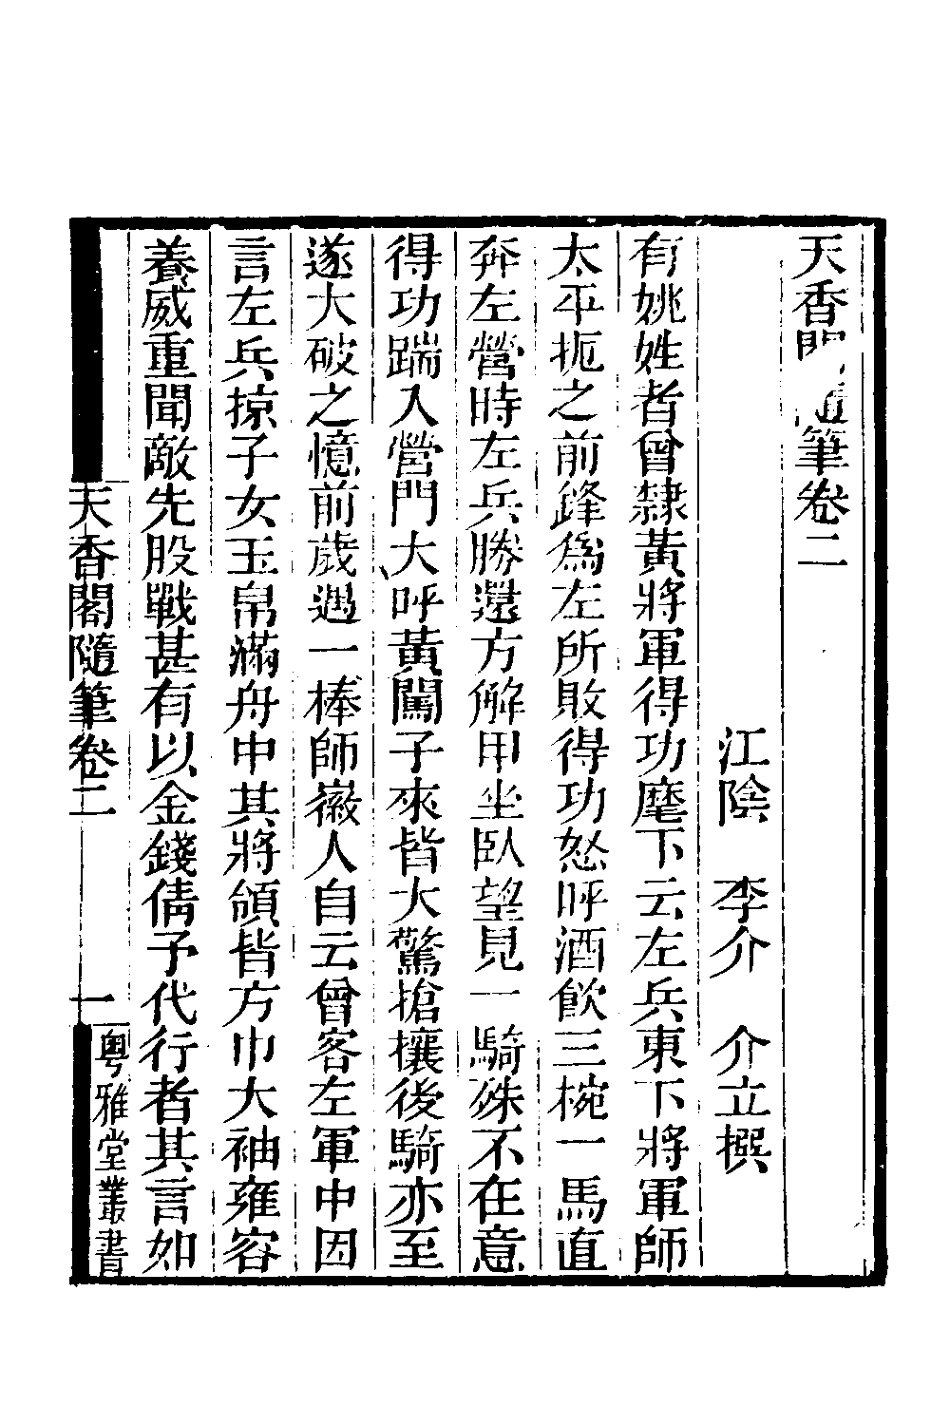 天香閣隨筆卷二
江陰 李介 介立撰
有姚姓者曾隸黃將軍得功麾下云左兵東下將軍師
太平扼之前鋒爲左所敗得功怒呼酒飲三椀一馬直
奔左營時左兵勝還方解甲坐臥望見一騎殊不在意
得功踹入營門大呼黃闖子來皆大驚搶攘後騎亦至
遂大破之憶前歲遇一棒師徽人自云曾客左軍中因
言左兵掠子女玉帛滿舟中其將領皆方巾大袖雍容
養威重聞敵先股戰甚有以金錢倩予代行者其言如
天香閣隨筆卷二 一 粵雅堂叢書